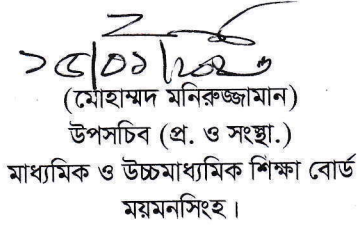 (মোহাম্মদ মনিরুজ্জামান)
উপসচিব (প্র. ও সংস্থা.)
মাধ্যমিক ও উচ্চমাধ্যমিক শিক্ষা বোর্ড
ময়মনসিংহ।